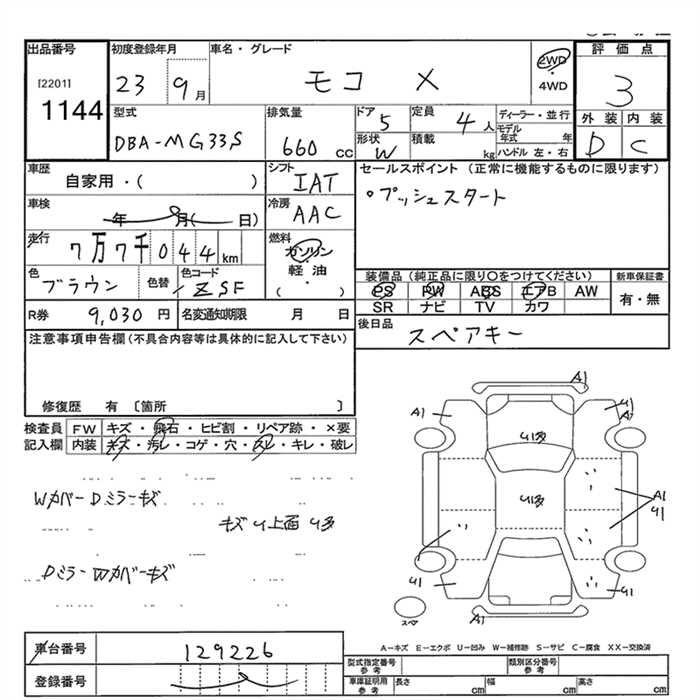 出品番号
[2201]
1144
初度登録年月
23 9月
車名・グレード
モコ X
2WD
・
4WD
評価点
3
外装 内装
D C
型式
DBA-MG33S
排気量
660 cc
ドア 5
定員 4人
形状 W
積載 kg
ディーラー・並行
モデル年式 年
ハンドル 左・右
車歴
自家用・( )
シフト
IAT
セールスポイント (正常に機能するものに限ります)
○プッシュスタート
車検
年 月( 日)
冷房
AAC
走行
7万7千044km
燃料
ガソリン
・
軽油
( )
色
ブラウン
色替
色コード
ZSF
装備品 (純正品に限り○をつけてください)
PS PW ABS エアB AW
SR ナビ TV カワ
新車保証書
有・無
R券 9,030円
名変通知期限 月 日
後日品
スペアキー
注意事項申告欄(不具合内容等は具体的に記入して下さい)
修復歴 有 〔箇所 〕
検査員 FW キズ・飛石・ヒビ割・リペア跡・×要
記入欄 内装 キズ・汚レ・コゲ・穴・スレ・キレ・破レ
Wカバー Dミラーキズ
キズ U 上面 U多
Dミラー Wカバーキズ
A1
A1
U1
A2
U多
U多
A1
U1
U1
U1
A1
スペア
A-キズ E-エクボ U-凹み W-補修跡 S-サビ C-腐食 XX-交換済
車台番号 129226
登録番号
型式指定番号 参考
類別区分番号 参考
車庫証明用 参考
長さ cm
幅 cm
高さ cm